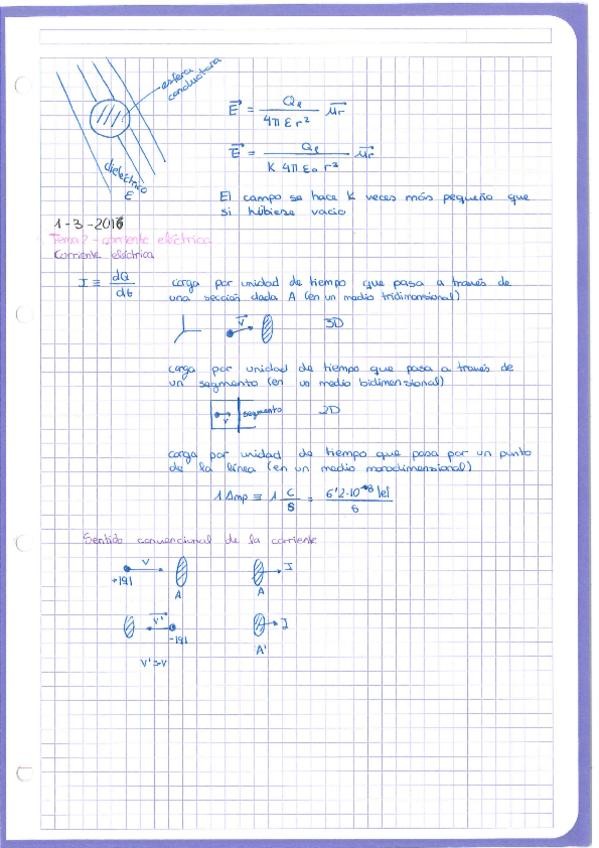 esfera
conductora
dieléctrico
ε
E = Qe / 4π ε r² ur
E = Qe / K 4π ε₀ r² ur
El campo se hace K veces más pequeño que
si hubiese vacío
1-3-2016
Tema 2 - corriente eléctrica
Corriente eléctrica
I ≡ dQ / dt carga por unidad de tiempo que pasa a través de
una sección dada A (en un medio tridimensional)
v 3D
carga por unidad de tiempo que pasa a través de
un segmento (en un medio bidimensional)
v segmento 2D
carga por unidad de tiempo que pasa por un punto
de la línea (en un medio monodimensional)
1 Amp ≡ 1 C / s = 6'2·10¹⁸ |e| / s
Sentido convencional de la corriente
v I
+|q| A A
v' I
-|q| A'